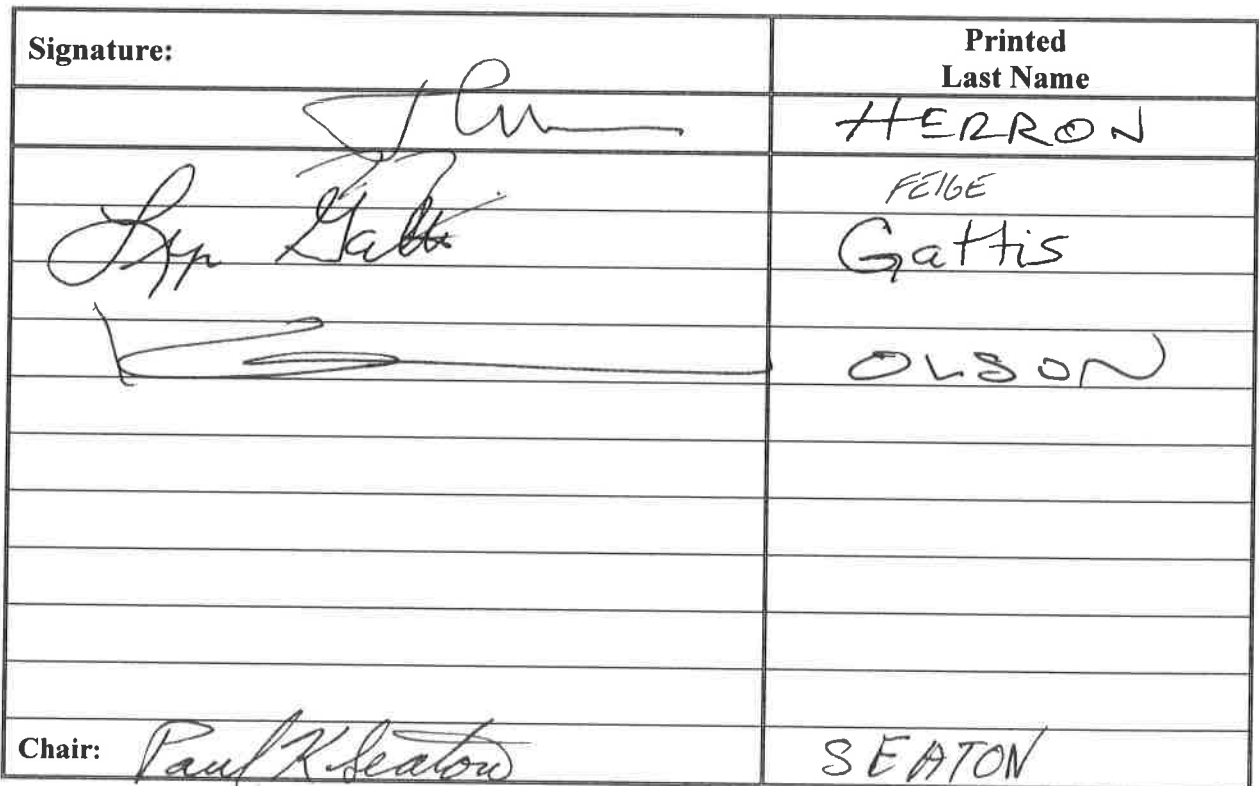 Signature: Printed
Last Name
HERRON
FEIGE
Gattis
OLSON
Chair: Paul K Seaton SEATON